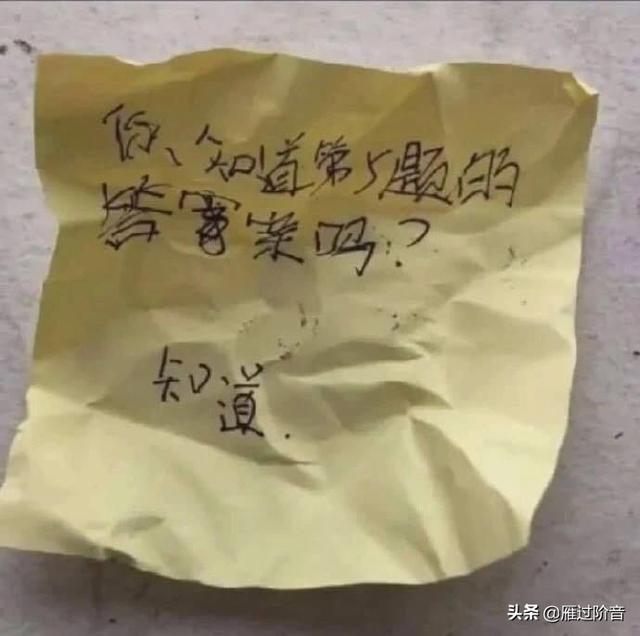 你、知道第5题的
答案吗?
知道.
头条 @雁过阶音